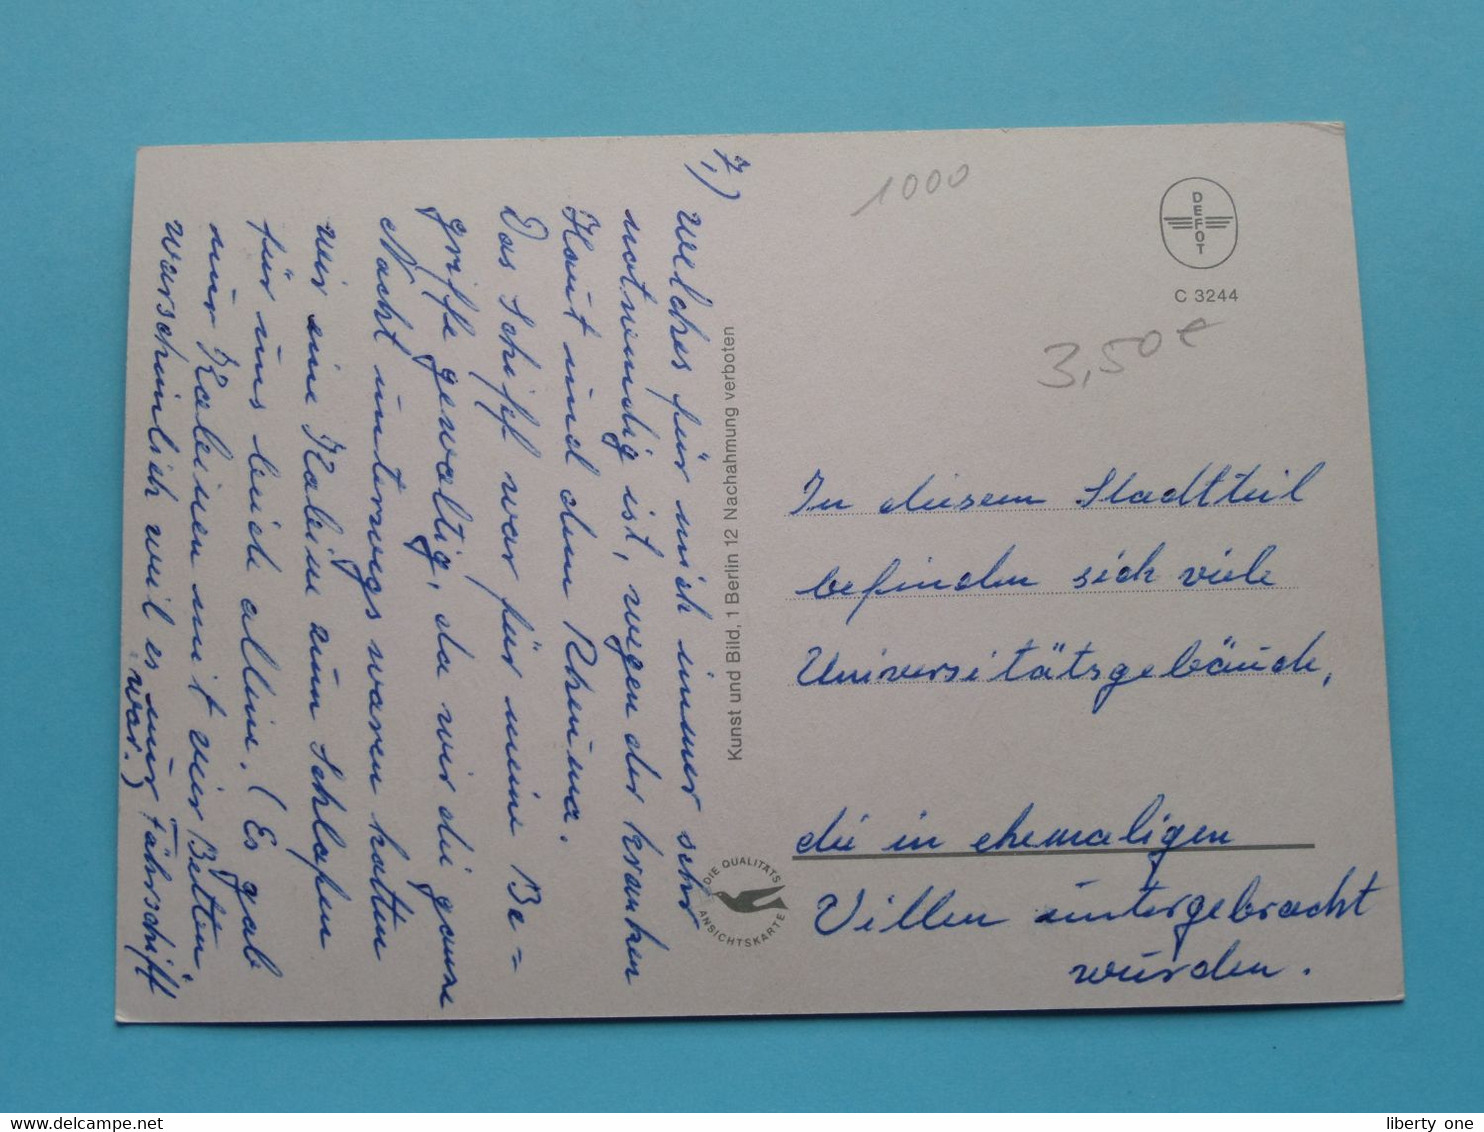 7.)
Welches für mich immer sehr
notwendig ist, wegen der kranken
Haut und dem Rheuma.
Das Schiff war für meine Be=
griffe gewaltig, da wir die ganze
Nacht unterwegs waren hatten
wir eine Kabine zum Schlafen
für uns beide alleine. (Es gab
nur Kabinen mit vier Betten
warscheinlich weil es nur Fährschiff
war.)
Kunst und Bild, 1 Berlin 12 Nachahmung verboten
DIE QUALITÄTS
ANSICHTSKARTE
1000
DEFOT
C 3244
3,50 €
In diesem Stadtteil
befinden sich viele
Universitätsgebäude,
die in ehemaligen
Villen untergebracht
wurden.
liberty one